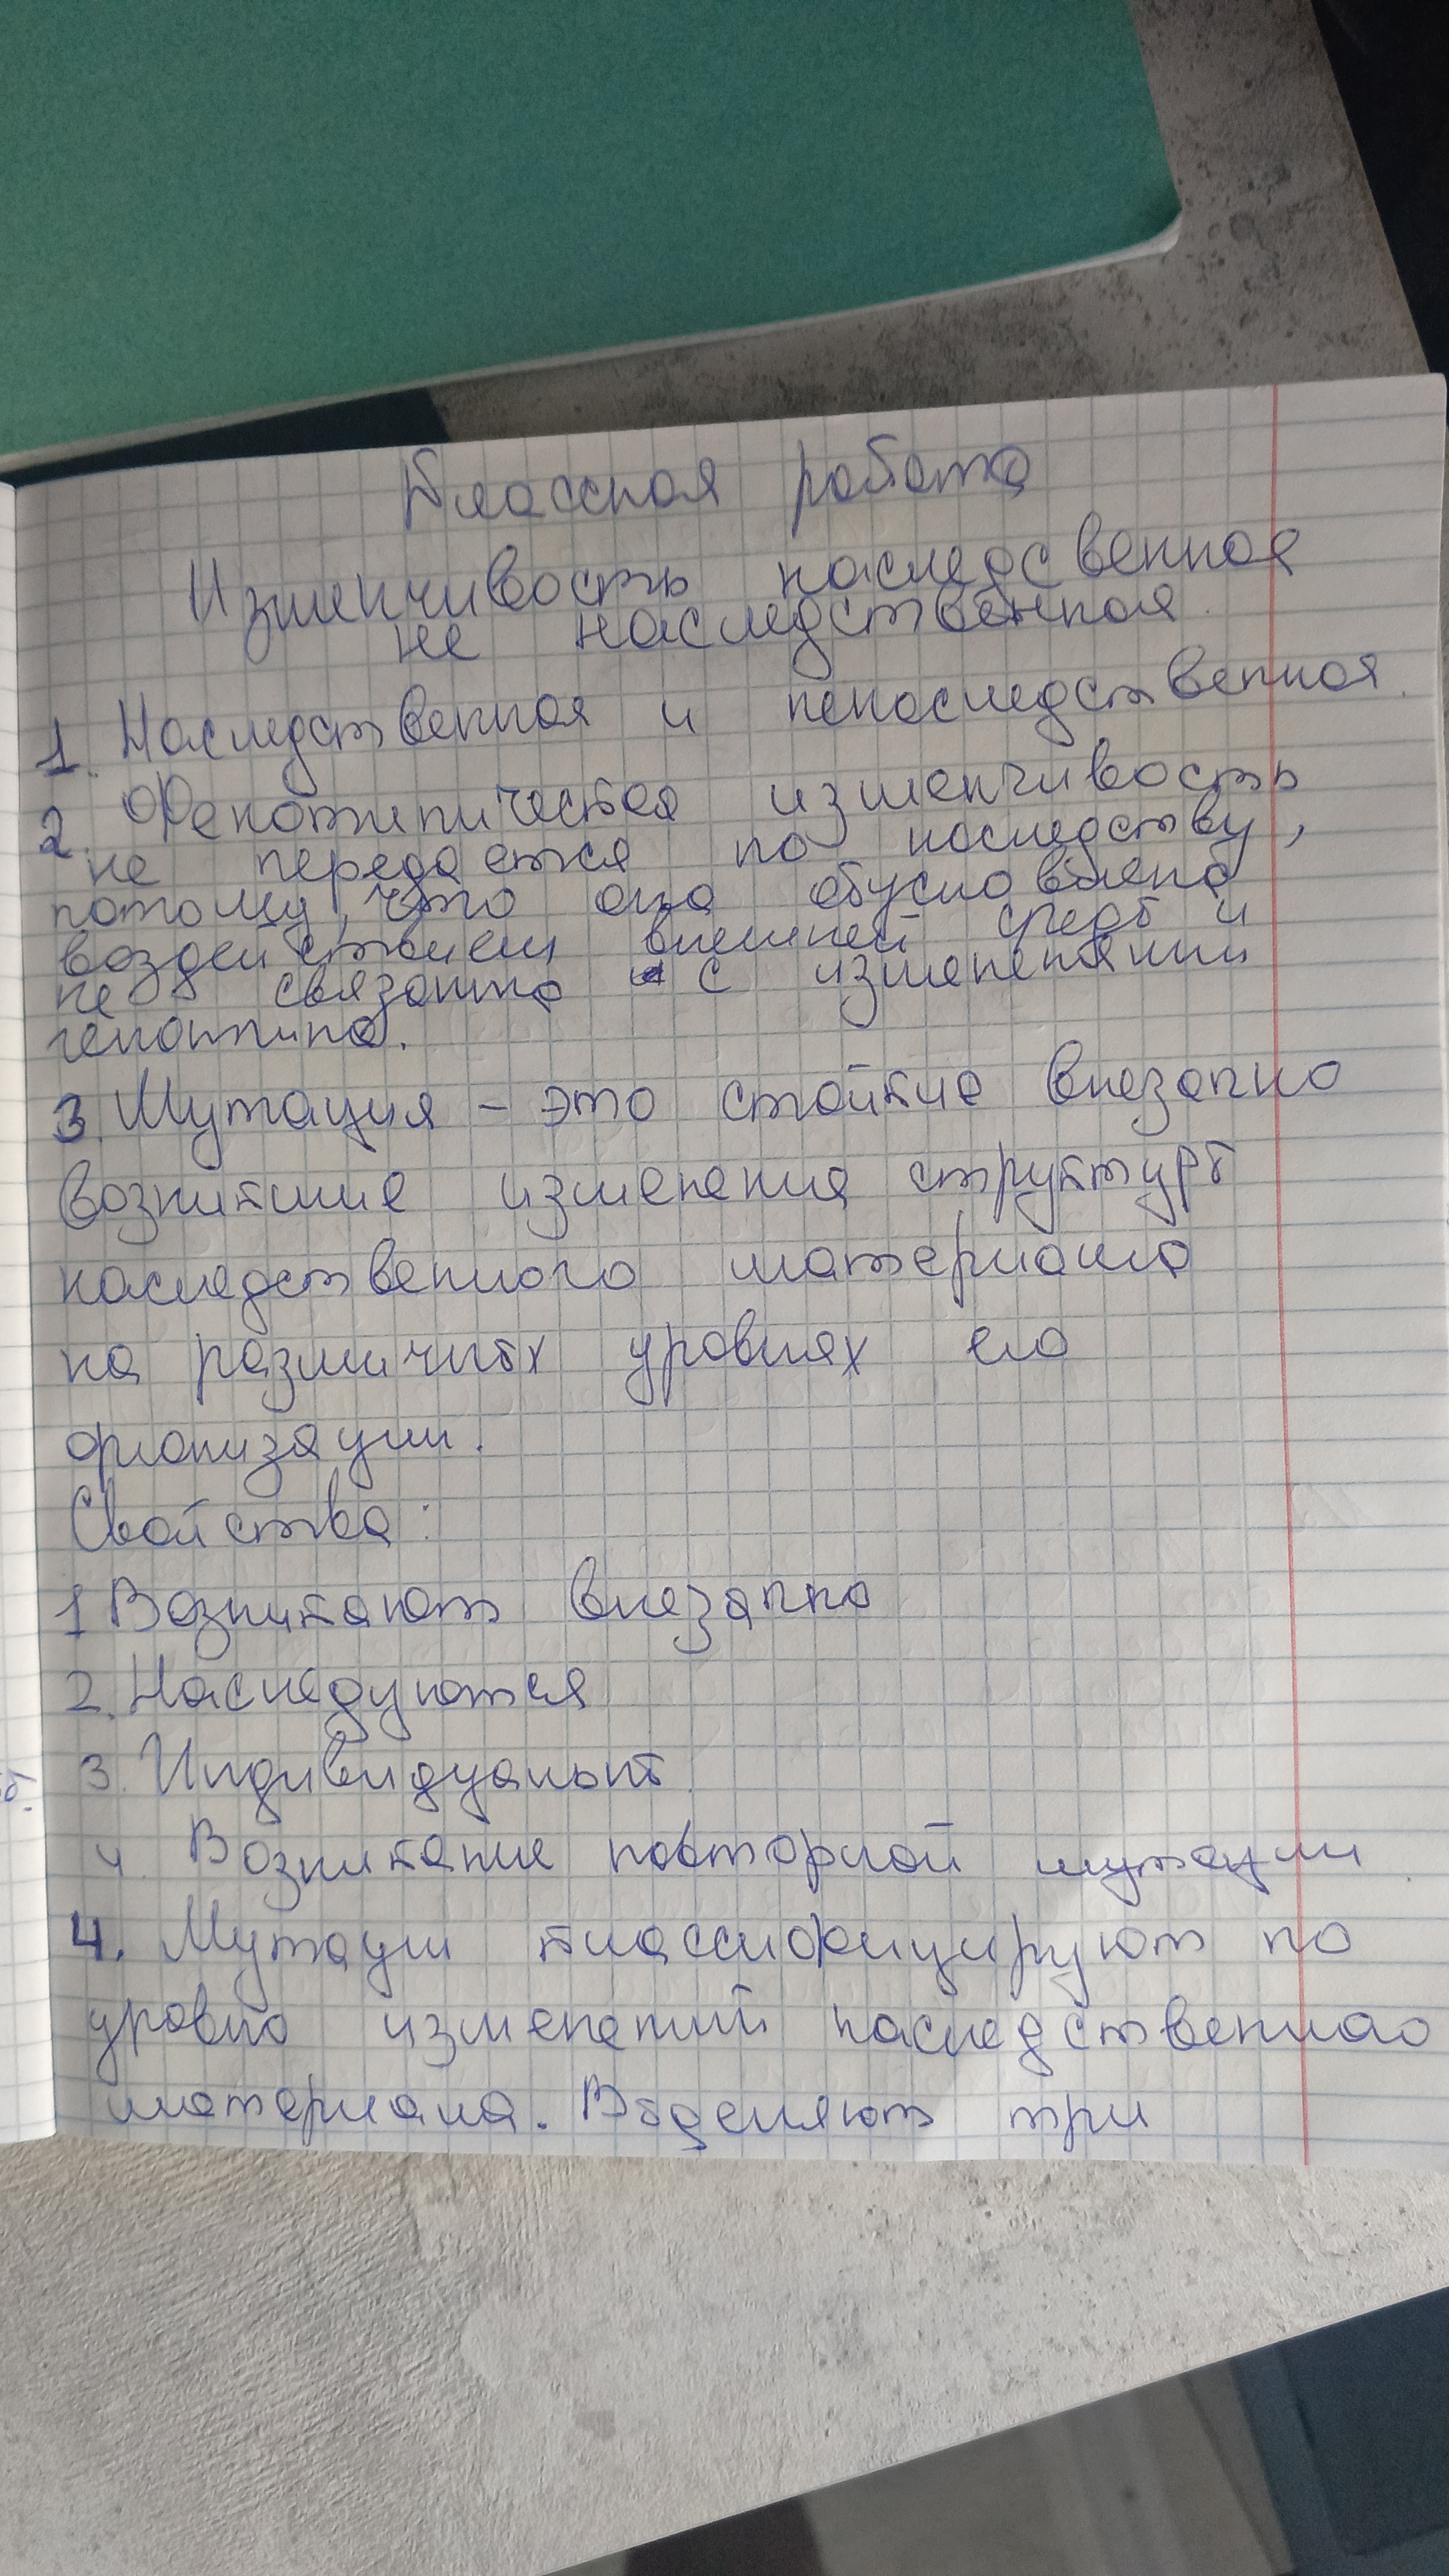 Классная работа
Изменчивость наследсвенная
не наследственная.
1. Наследственная и ненаследственная.
2. Фенотипическая изменчивость
не передается по наследству,
потому, что она обусловлена
воздействием внешней среды и
не связанна с изменениями
генотипа.
3. Мутация – это стойкие внезапно
возникшие изменения структуры
наследственного материала
на различных уровнях его
организации.
Свойства:
1 Возникают внезапно
2. Наследуются
3. Индивидуальны.
4. Возникание повторной мутации.
4. Мутации классифицируют по
уровню изменений наследственного
материала. Выделяют три